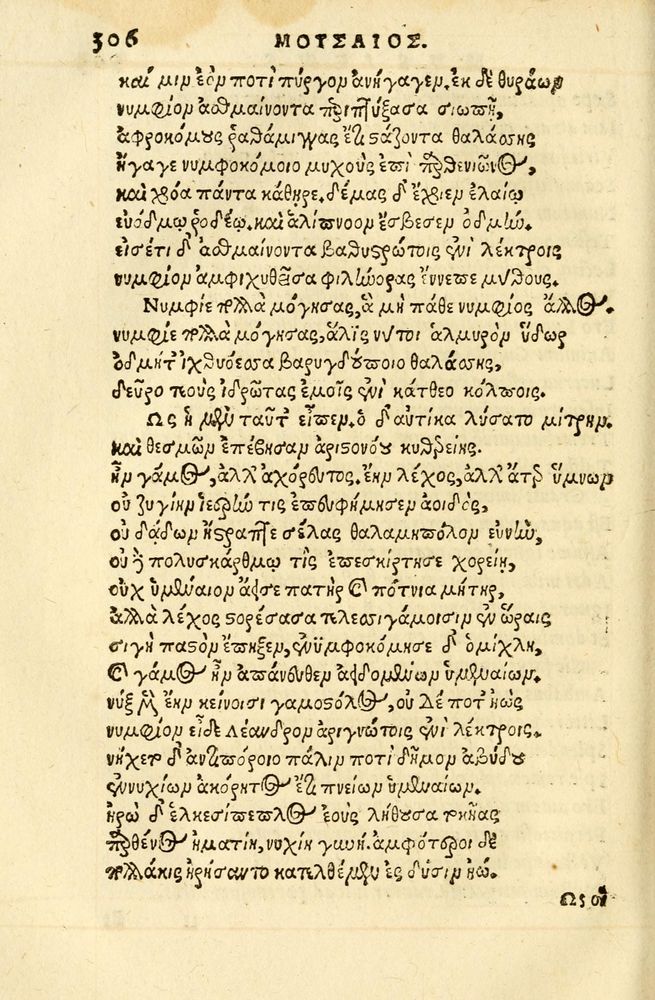 306 ΜΟΥΣΑΙΟΣ.
καί μιν ἑὸν ποτὶ πύργον ἀνήγαγεν. ἐκ δὲ θυράων
νυμφίον ἀσθμαίνοντα περιπτύξασα σιωπῇ,
ἀφροκόμους ῥαθάμιγγας ἔτι στάζοντα θαλάσσης
ἤγαγε νυμφοκόμοιο μυχοὺς ἐπὶ παρθενιῶνος,
καὶ χρόα πάντα κάθηρε. δέμας δ' ἔχριεν ἐλαίῳ
εὐόδμῳ ῥοδέῳ. καὶ ἁλίπνοον ἔσβεσεν ὀδμήν.
εἰσέτι δ' ἀσθμαίνοντα βαθυστρώτοις ἐνὶ λέκτροις
νυμφίον ἀμφιχυθεῖσα φιλήνορας ἔννεπε μύθους.
Νυμφίε πολλὰ μόγησας, ἃ μὴ πάθε νυμφίος ἄλλος.
νυμφίε πολλὰ μόγησας, ἅλις νύ τοι ἁλμυρὸν ὕδωρ
ὀδμή τ' ἰχθυόεσσα βαρυγδούποιο θαλάσσης,
δεῦρο τοὺς ἱδρῶτας ἐμοῖς ἐνὶ κάτθεο κόλποις.
Ως ἡ μὲν ταῦτ' εἶπεν. ὁ δ' αὐτίκα λύσατο μίτρην.
καὶ θεσμῶν ἐπέβησαν ἀριστονόου κυθερείης.
ἦν γάμος, ἀλλ' ἀχόρευτος. ἔην λέχος, ἀλλ' ἄτερ ὕμνων
οὐ ζυγίην ἱερὴν τις ἐπευφήμησεν ἀοιδός,
οὐ δάδων ἤστραπτε σέλας θαλαμηπόλον εὐνήν,
οὐδὲ πολυσκάρθμῳ τίς ἐπεσκίρτησε χορείῃ,
οὐχ ὑμέναιον ἄεισε πατὴρ καὶ πότνια μήτηρ,
ἀλλὰ λέχος στορέσασα τελεσσιγάμοισιν ἐν ὥραις
σιγὴ παστὸν ἔπηξεν, ἐνυμφοκόμησε δ' ὁμίχλη,
καὶ γάμος ἦν ἀπάνευθεν ἀειδομένων ὑμεναίων.
νὺξ μὲν ἔην κείνοισι γαμοστόλος, οὐ δέ ποτ' ἠὼς
νυμφίον εἶδε Λέανδρον ἀριγνώτοις ἐνὶ λέκτροις.
νήχετο δ' ἀντιπόροιο πάλιν ποτὶ δῆμον ἀβύδου
ἐννυχίων ἀκόρητος ἔτι πνείων ὑμεναίων.
ἡρὼ δ' ἑλκεσίπεπλος ἑοὺς λήθουσα τοκῆας
παρθένος ἠματίη, νυχίη γυνή. ἀμφότεροι δὲ
πολλάκις ἠρήσαντο κατελθέμεν ἐς δύσιν ἠώ.
Ως οἱ